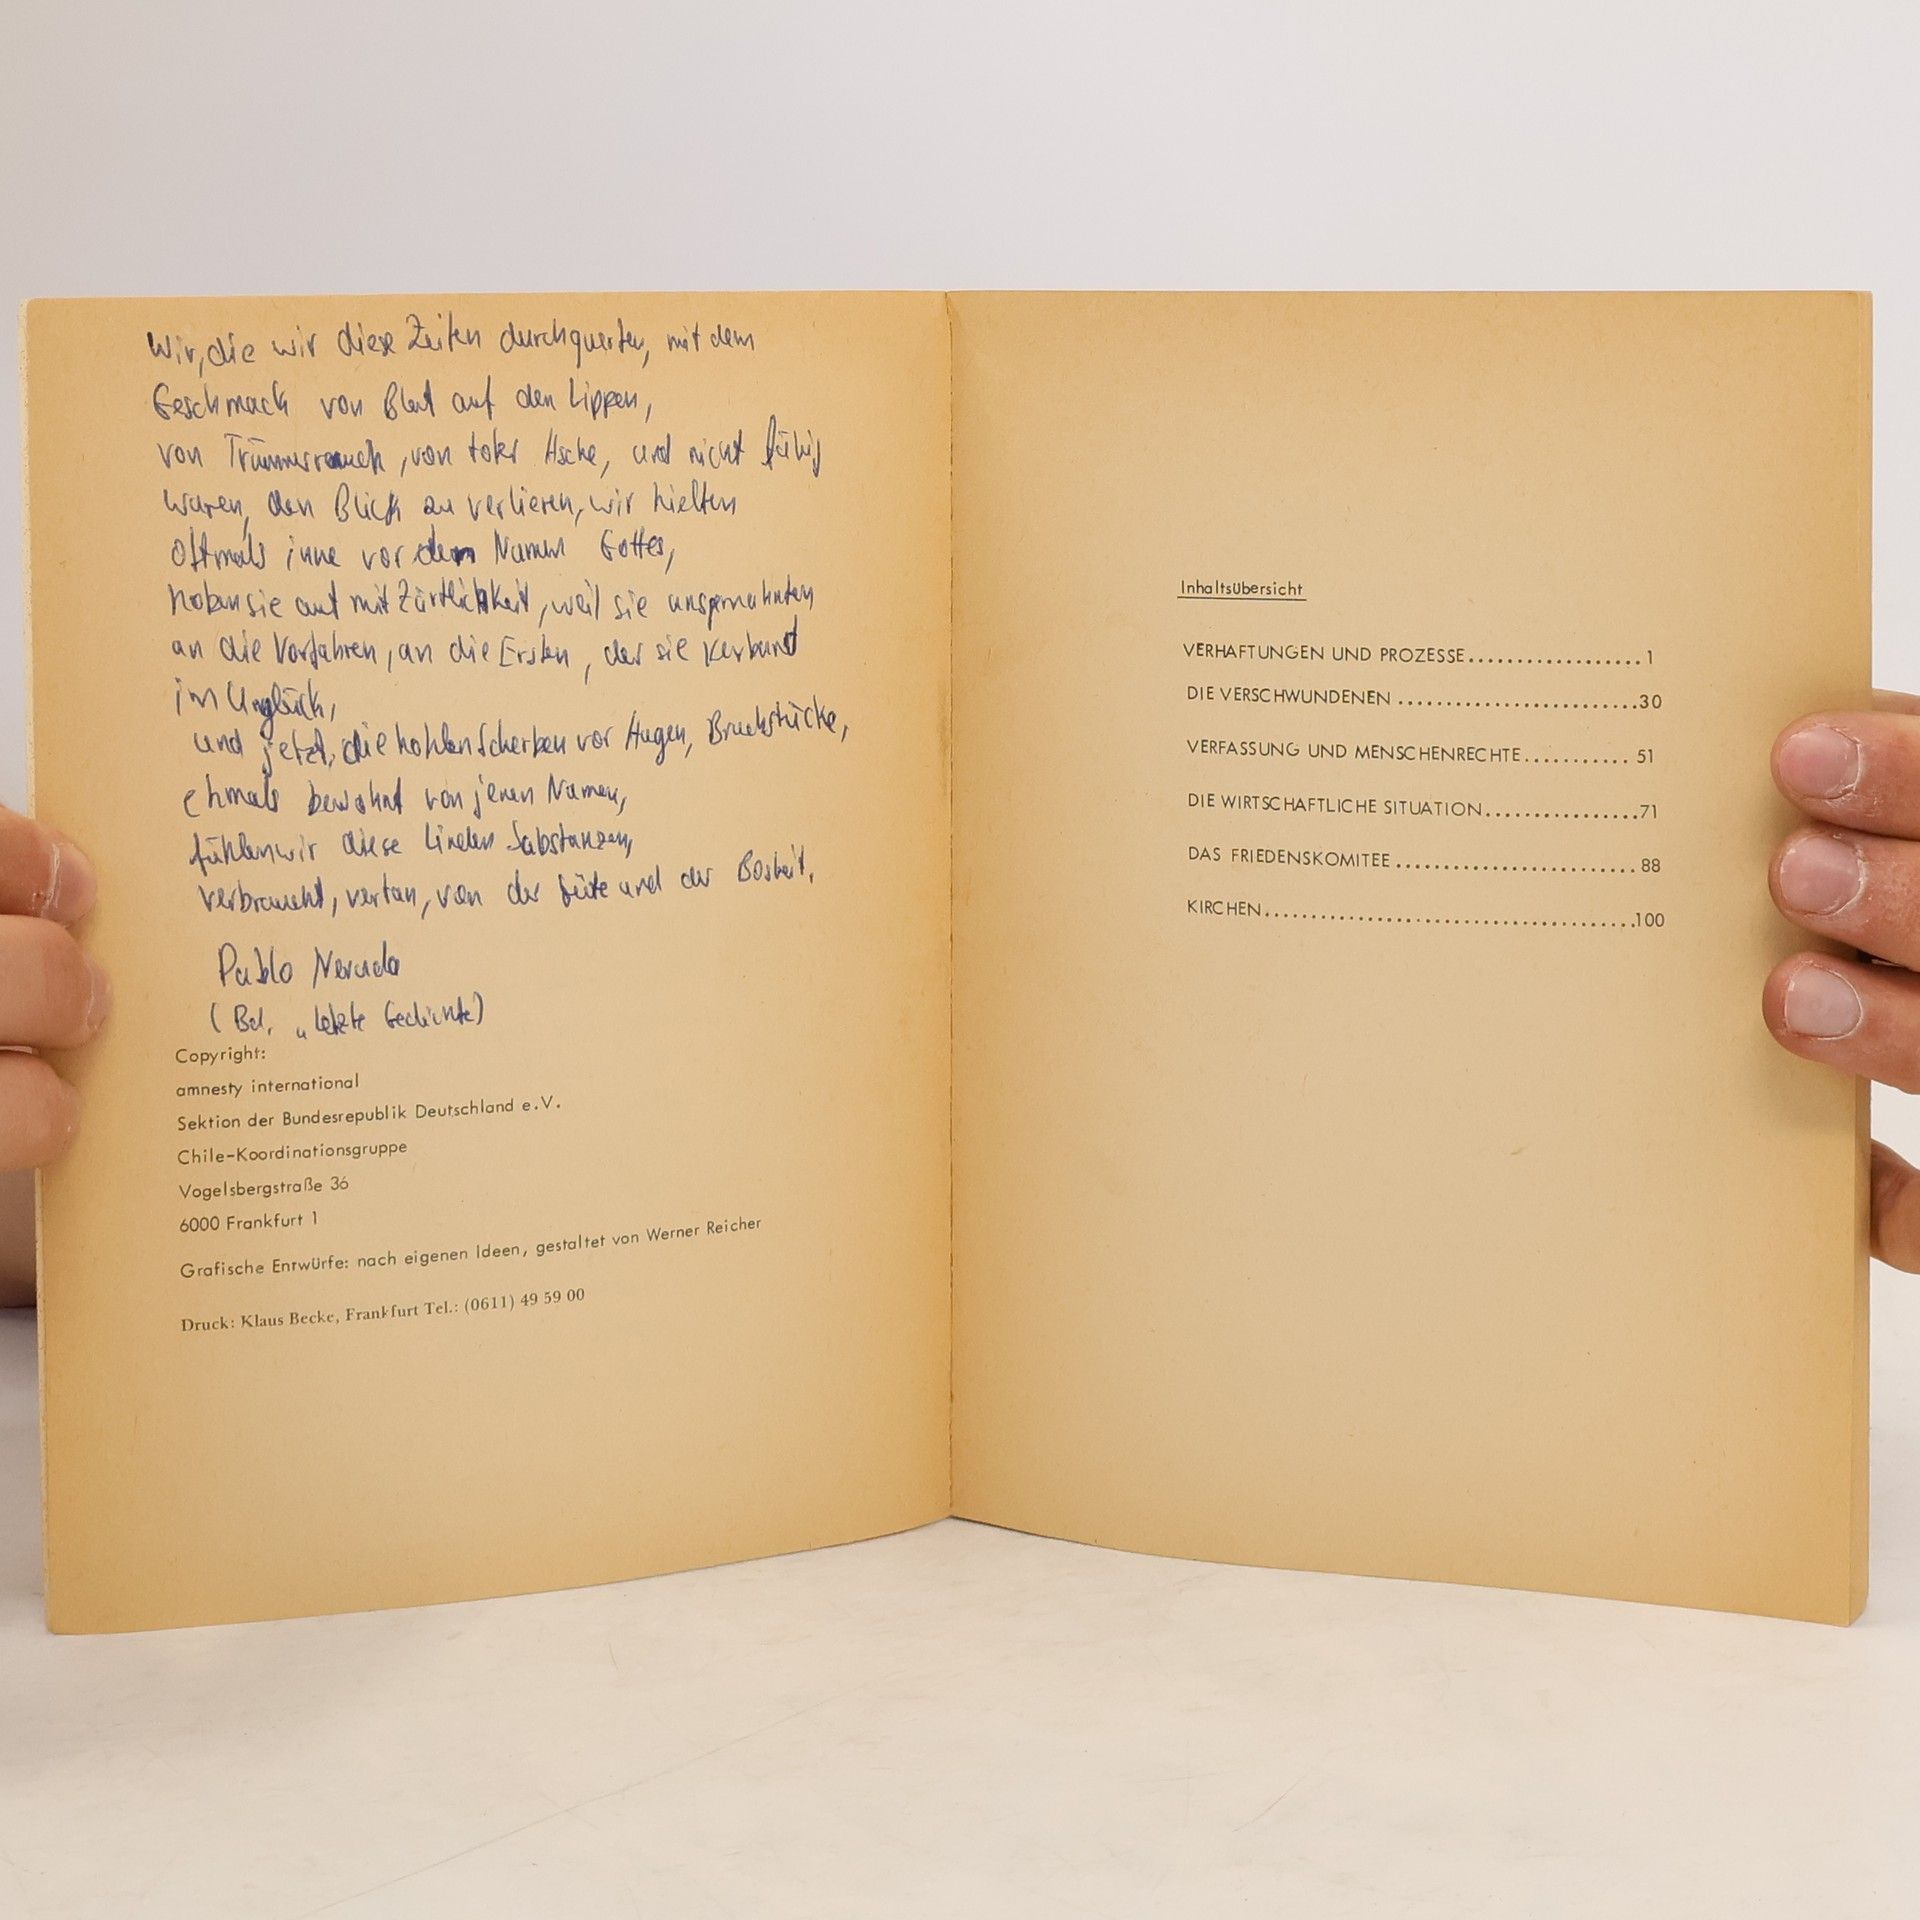 Wir, die wir diese Zeiten durchquerten, mit dem
Geschmack von Blut auf den Lippen,
von Trümmerrauch, von toter Asche, und nicht fähig
waren, den Blick zu verlieren, wir hielten
oftmals inne vor dem Namen Gottes,
hoben sie auf mit Zärtlichkeit, weil sie uns gemahnten
an die Vorfahren, an die Ersten, der sie verband
im Unglück,
und jetzt, die hohlen Scherben vor Augen, Bruchstücke,
ehmals bewohnt von jenen Namen,
fühlen wir diese linden Substanzen,
verbraucht, vertan, von der Güte und der Bosheit.
Pablo Neruda
(Bd. „letzte Gedichte)
Copyright:
amnesty international
Sektion der Bundesrepublik Deutschland e.V.
Chile-Koordinationsgruppe
Vogelsbergstraße 36
6000 Frankfurt 1
Grafische Entwürfe: nach eigenen Ideen, gestaltet von Werner Reicher
Druck: Klaus Becke, Frankfurt Tel.: (0611) 49 59 00
Inhaltsübersicht
VERHAFTUNGEN UND PROZESSE..................1
DIE VERSCHWUNDENEN .........................30
VERFASSUNG UND MENSCHENRECHTE........... 51
DIE WIRTSCHAFTLICHE SITUATION................71
DAS FRIEDENSKOMITEE ......................... 88
KIRCHEN.......................................100